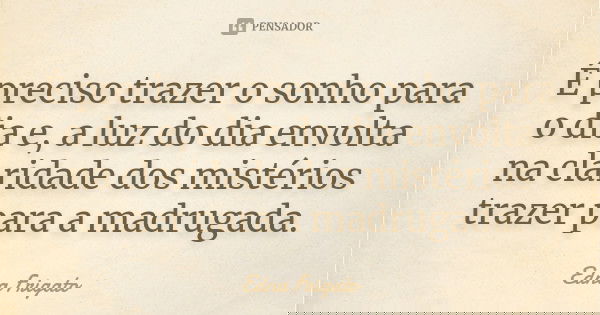 PENSADOR
É preciso trazer o sonho para
o dia e, a luz do dia envolta
na claridade dos mistérios
trazer para a madrugada.
Edna Frigato